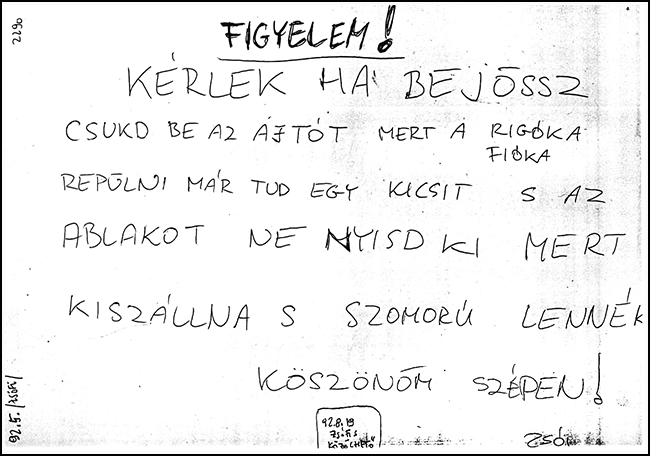 2290
FIGYELEM!
KÉRLEK HA BEJÖSSZ
CSUKD BE AZ ÁJTÓT MERT A RIGÓKA
FIÓKA
REPÜLNI MÁR TUD EGY KICSIT S AZ
ABLAKOT NE NYISD KI MERT
KISZÁLLNA S SZOMORÚ LENNÉK
KÖSZÖNÖM SZÉPEN!
ZSÓ
92.8.19
92.5.